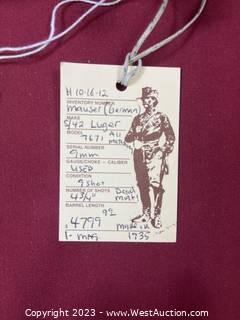 H 10-16-12
INVENTORY NUMBER
Mauser (German)
MAKE
S/42 Luger
MODEL
7671 All
matc
SERIAL NUMBER
9mm
GAUGE/CHOKE - CALIBER
USED
CONDITION
9 shot
NUMBER OF SHOTS
4 3/4"
BARREL LENGTH
92
$ 4799 made in
1- mag 1935
Copyright © 2023 - www.WestAuction.com